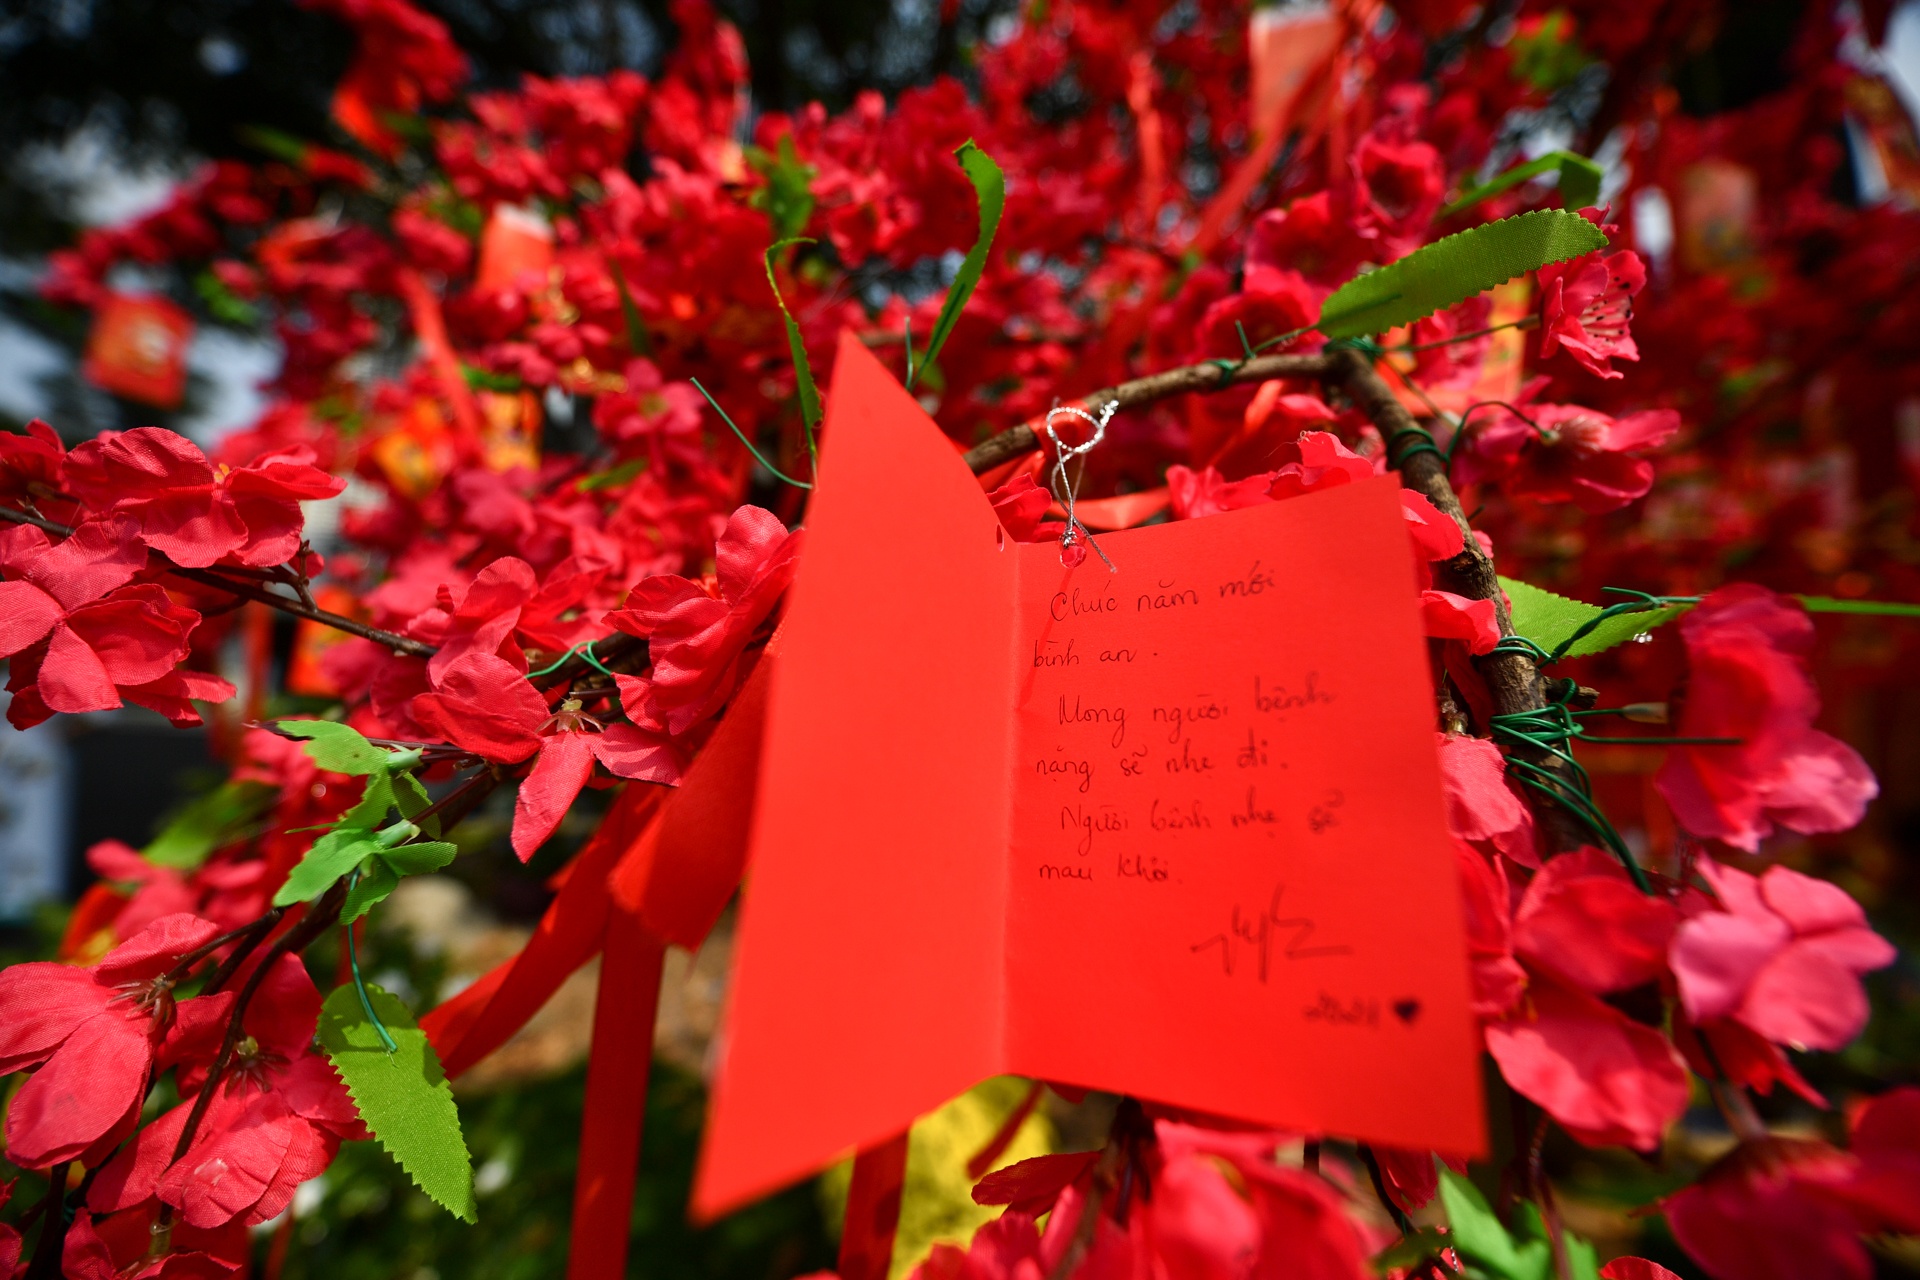 Chúc năm mới
bình an.
Mong người bệnh
nặng sẽ nhẹ đi.
Người bệnh nhẹ sẽ
mau khỏi.